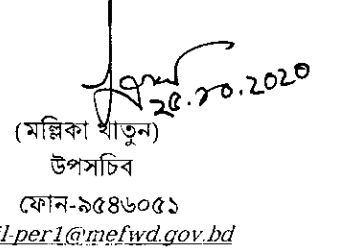 ২৫.১০.2020
(মল্লিকা খাতুন)
উপসচিব
ফোন-৯৫৪৬০৫১
il-per1@mefwd.gov.bd